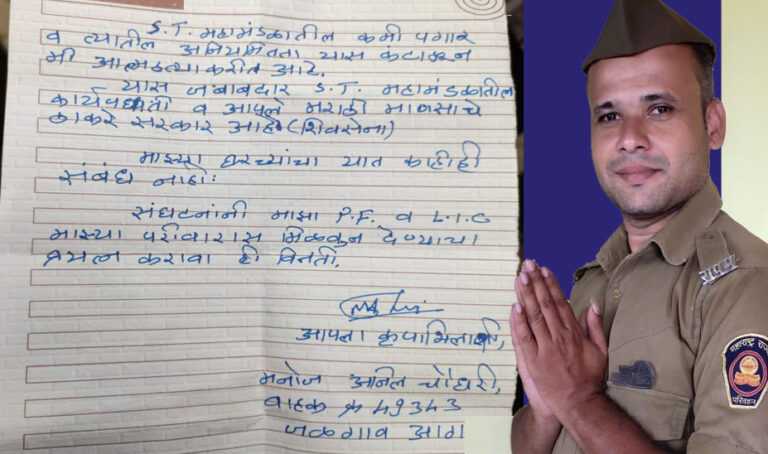 S.T. महामंडळातील कमी पगार
व त्यातील अनियमितता यास कंटाळून
मी आत्महत्या करीत आहे.
यास जबाबदार S.T. महामंडळातील
कार्यपध्दती व आपले मराठी माणसाचे
ठाकरे सरकार आहे (शिवसेना)
माझ्या घरच्यांचा यात काहीही
संबंध नाही:
संघटनांनी माझा P.F. व L.I.C
माझ्या परीवारास मिळवुन देण्याचा
प्रयत्न करावा ही विनंती.
आपला कृपाभिलाषी,
मनोज अनिल चौधरी,
वाहक क्र 49343
जळगाव आगा
रापम
महाराष्ट्र राज्य
परिवहन